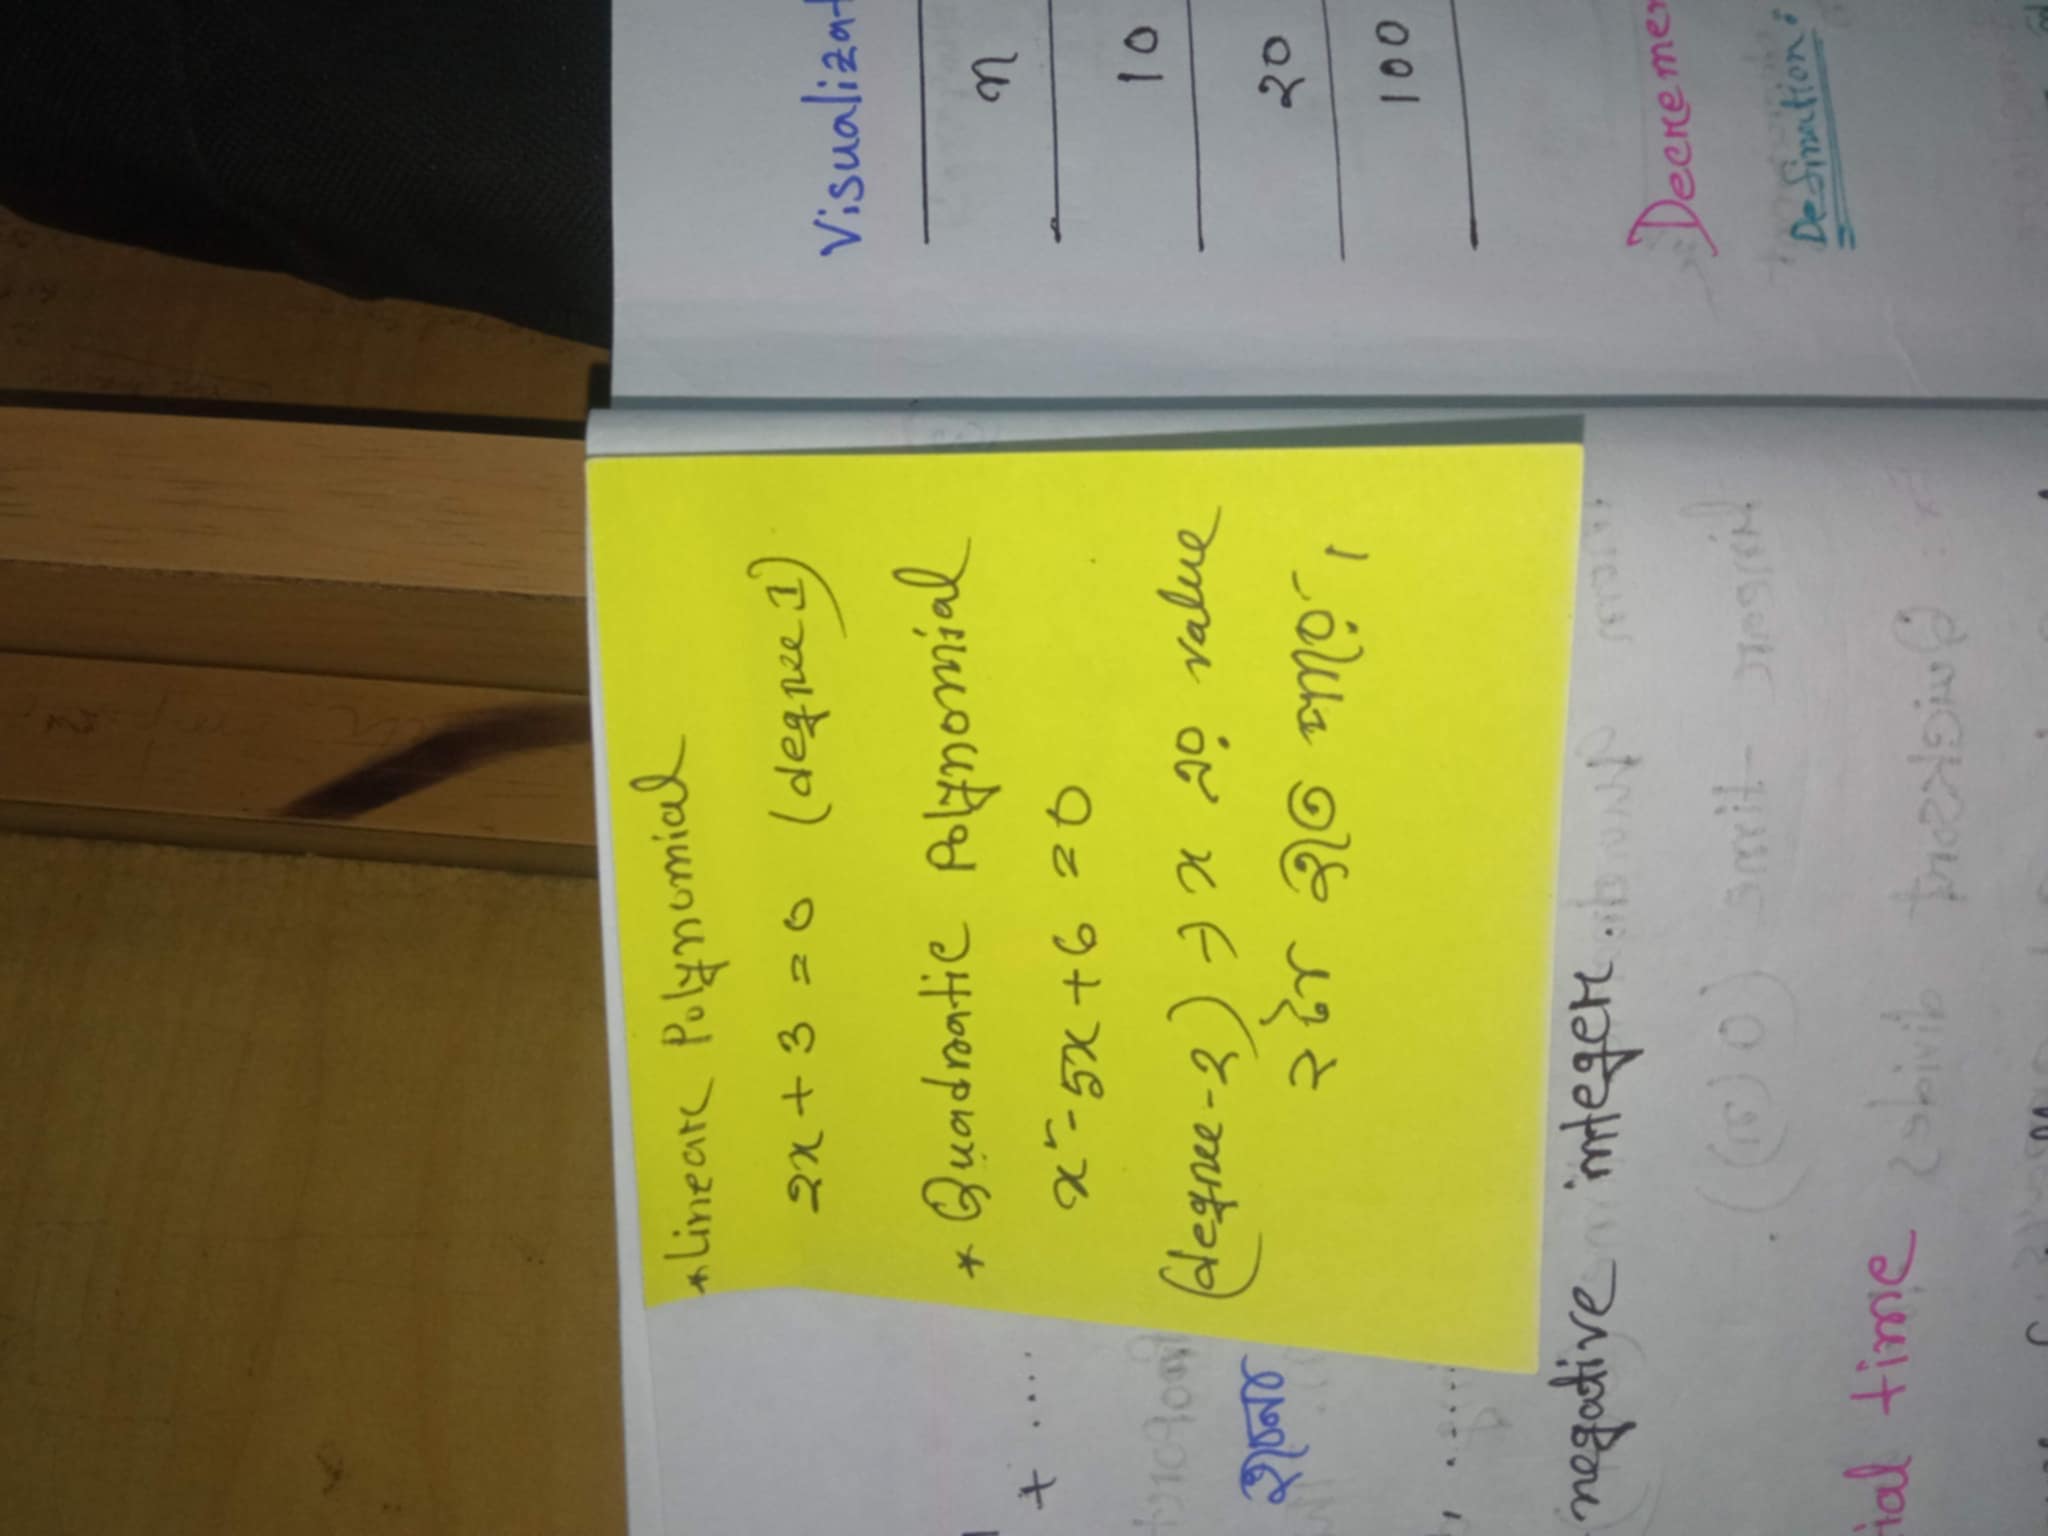 * Linear Polynomial
2x + 3 = 0 (degree 1)
* Quadratic Polynomial
x² - 5x + 6 = 0
(degree-2) → x এর value
২ টা হতে পারে।
+ ....
হলো
, .....
negative integer.
ial time
Visualizat
n
10
20
100
Decremen
Defination: